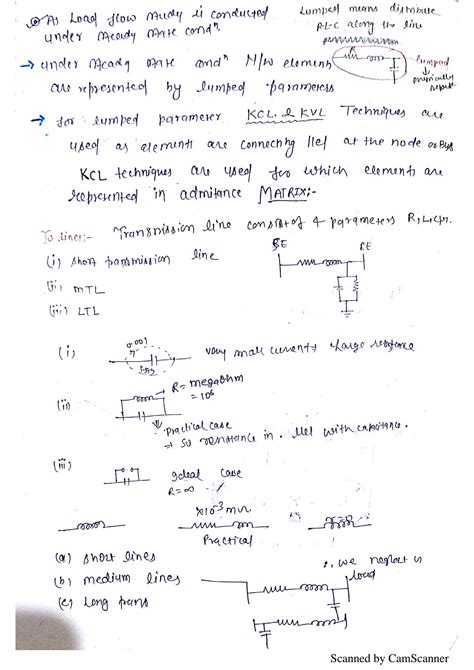 As Load flow study is conducted
under steady state condn
Lumped means distribute
R-L-C along the line
→ under steady state condn N/w element
are represented by lumped parameters
R
lumped
physically
→ for lumped parameter KCL & KVL Techniques are
used as elements are connecting llel at the node or Bus
KCL techniques are used for which elements are
represented in admitance MATRIX:-
To lines:- Transmission line consist of 4 parameters R, L, C,
(i) short transmission line
(ii) MTL
(iii) LTL
SE
RE
(i)
0.001
very small current → Large resistance
(ii)
R = megaohm
= 10⁶
practical case
→ so resistance in llel with capacitance.
(iii)
Ideal case
R=∞
×10⁻³ mΩ
Practical
(a) short lines
(b) medium lines
(c) Long
∴ we neglect
load
Scanned by CamScanner